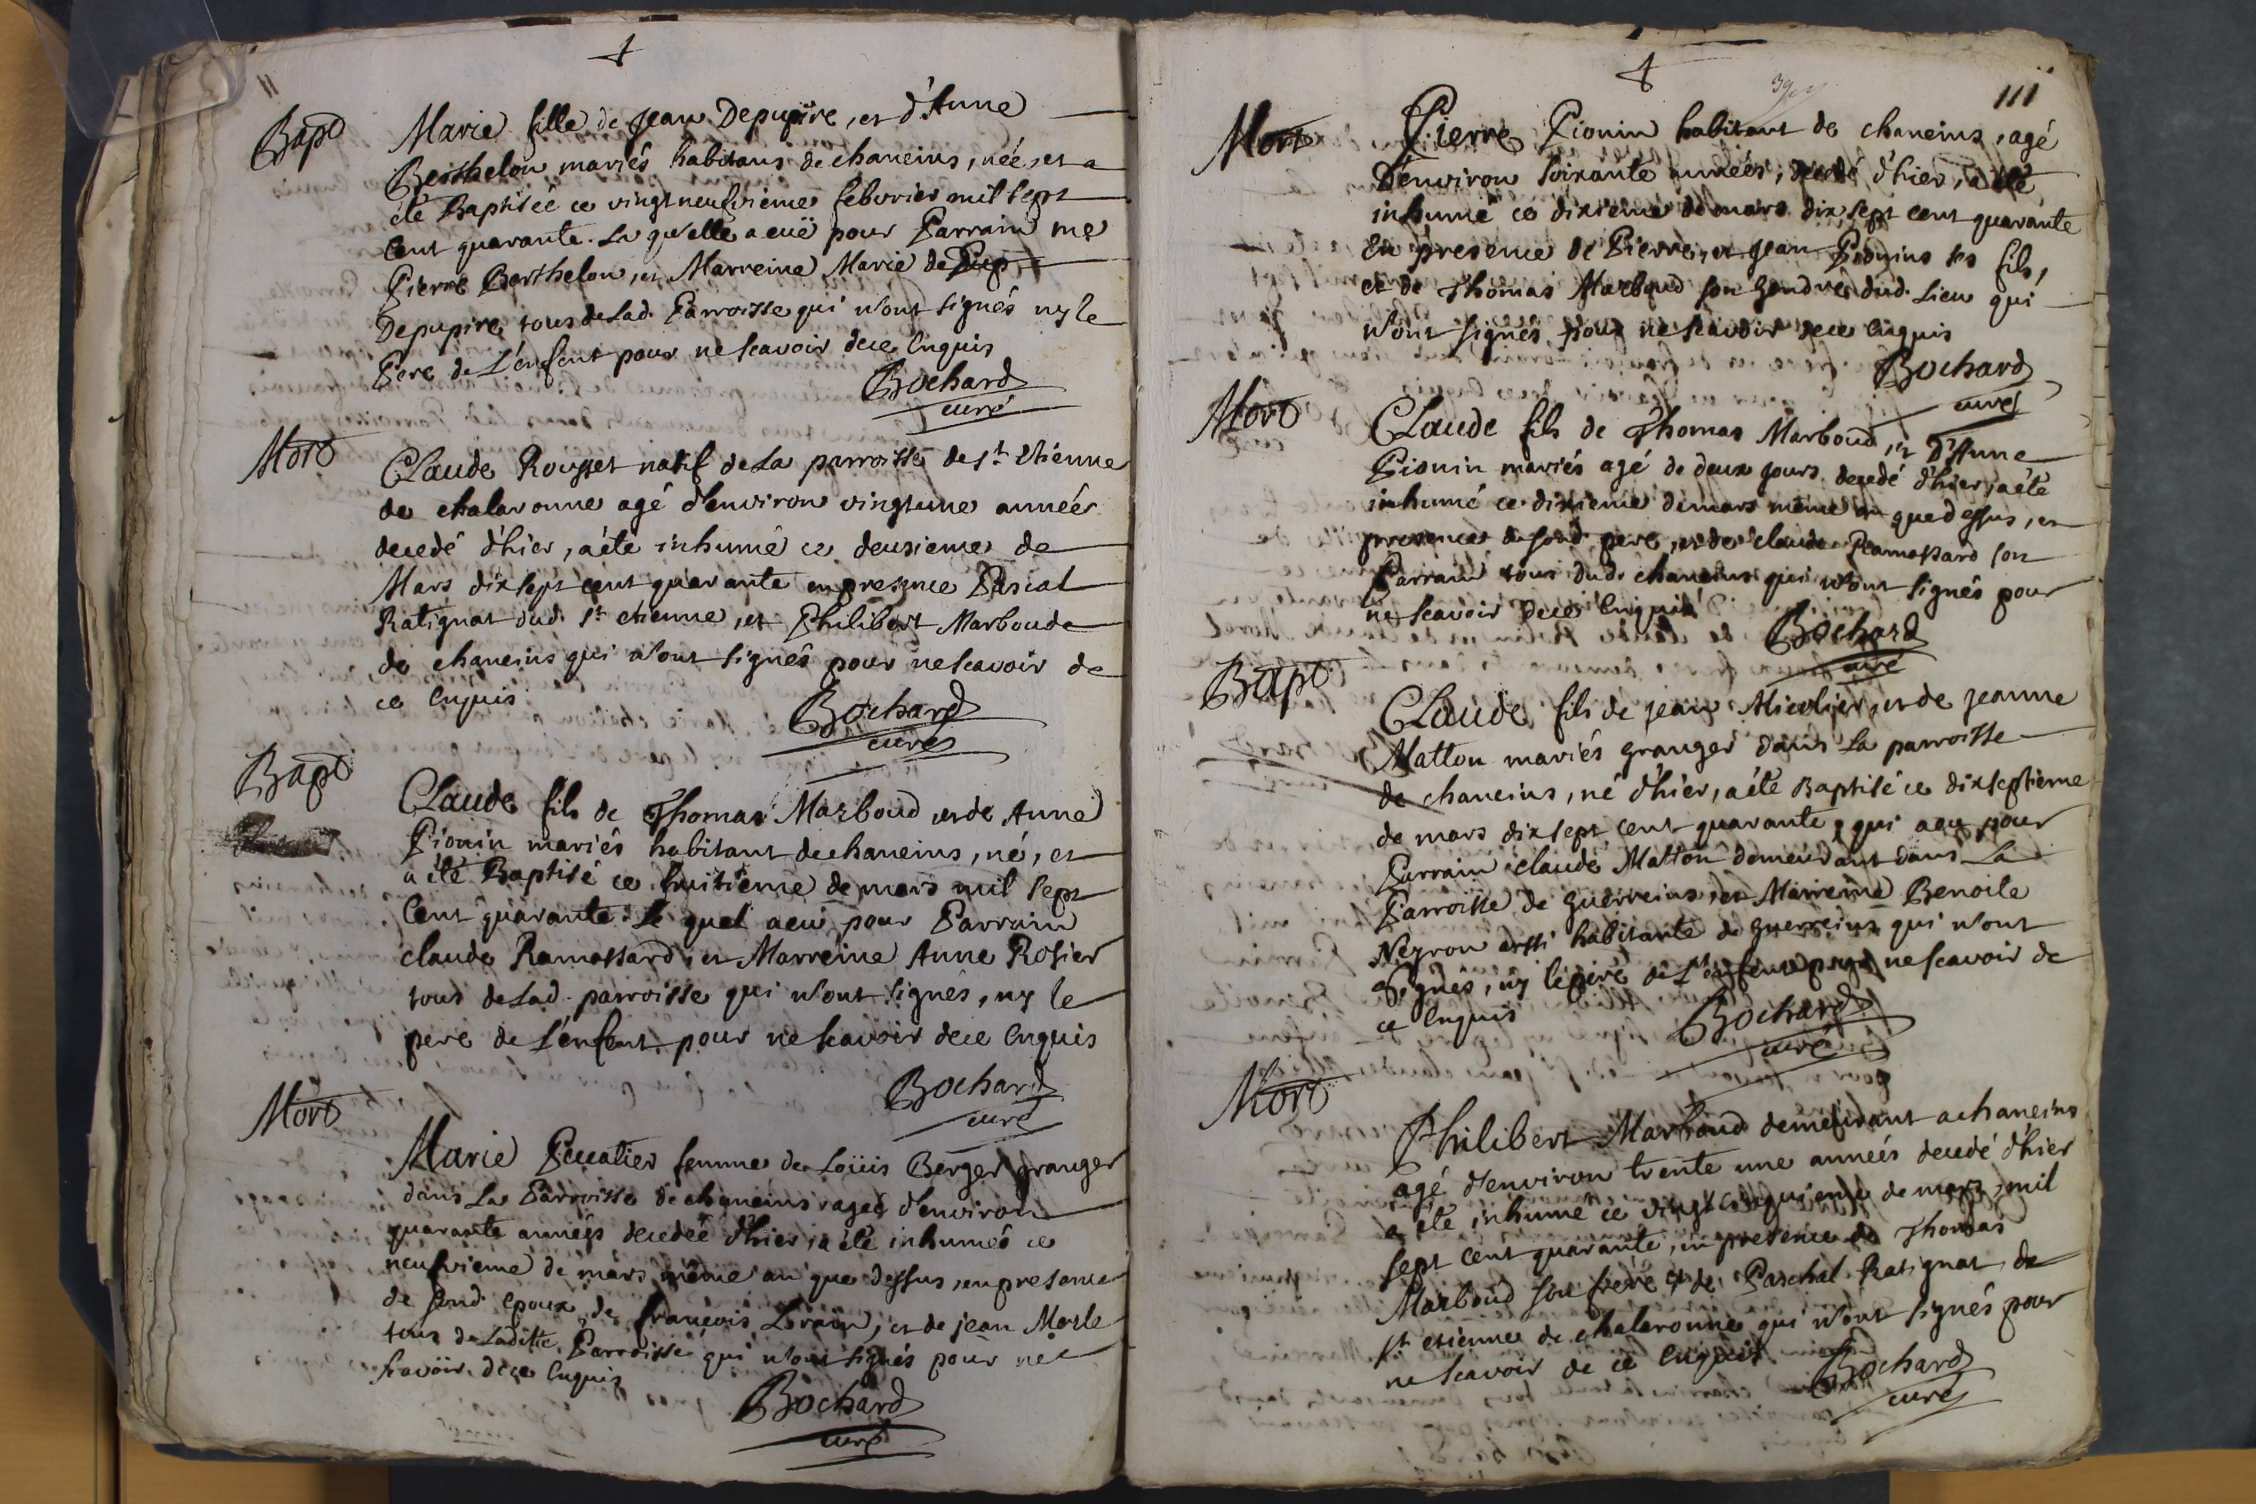 11
Bapt
Marie fille de Jean Depupire, et d'Anne
Berthelon mariés habitans de chaneins, née, et a
été Baptisée ce vingt neufvieme febvrier mil sept
Cent quarante. La qu'elle a eüe pour Parrain me
Pierre Berthelon, et Marreine Marie de Pup
Depupire tous de Lad. Parroisse qui n'ont signés ny le
Pere de L'enfent pour ne scavoir de ce Enquis
Bochard
curé
Mort
Claude Rousset natif de La parroisse de st. Etienne
de chalaronne agé d'environ vingt une années
decedé d'hier, a été inhumé ce deusieme de
Mars dix sept cent quarante en presence Pascal
Ratignat dud. st. etienne, et Philibert Marboude
de chaneins qui n'ont signés pour ne scavoir de
ce Enquis
Bochard
curé
Bapt
Claude fils de Thomas Marboud et de Anne
Pionin mariés habitant de chaneins, né, et
a été Baptisé ce huitieme de mars mil sept
Cent quarante. Le quel a eu pour Parrain
claude Ramassard, et Marreine Anne Rosier
tous de Lad. parroisse qui n'ont signés, ny le
pere de L'enfent pour ne scavoir de ce Enquis
Bochard
curé
Mort
Marie femme de Loüis Berger granger
dans La Parroisse de chaneins agée d'environ
quarante années decedée d'hier, a été inhumée ce
neufvieme de mars même an que dessus, en presance
de sond. epoux, de françois Lorain, et de jean Morle
tous de Laditte Parroisse qui n'ont signés pour ne
scavoir de ce Enquis
Bochard
curé
111
Mort
Pierre Pionin habitant de chaneins, agé
D'environ soixante années, decedé d'hier, a été
inhumé ce dixieme de mars dix sept cent quarante
En presence de Pierre, et Jean Pionins ses fils,
et de Thomas Marboud son gendre dud. Lieu qui
n'ont signés pour ne scavoir de ce Enquis
Bochard
curé
Mort
Claude fils de Thomas Marboud, et D'Anne
Pionin mariés agé de deux jours decedé d'hier, a été
inhumé ce dixieme de mars même an que dessus, en
presence de sond. pere, et de claude Ramassard son
Parrain tous dud. chaneins qui n'ont signés pour
ne scavoir de ce Enquis
Bochard
curé
Bapt
Claude fils de jean Micolier, et de jeanne
Matton mariés granger dans La parroisse
de chaneins, né d'hier, a été Baptisé ce dixseptieme
de mars dix sept cent quarante, qui a eu pour
Parrain claude Matton demeurant dans La
Parroisse de guerreins, et Marreine Benoite
Neyron aussi habitante de guerreins qui n'ont
signés, ny le pere de L'enfent pour ne scavoir de
ce Enquis
Bochard
curé
Mort
Philibert Marboud demeurant a chaneins
agé d'environ trente une années decedé d'hier
a été inhumé ce vingt cinquieme de mars, mil
sept cent quarante, en presence de Thomas
Marboud son frere et de Paschal Ratignat de
st. etienne de chalaronne qui n'ont signés pour
ne scavoir de ce Enquis
Bochard
curé